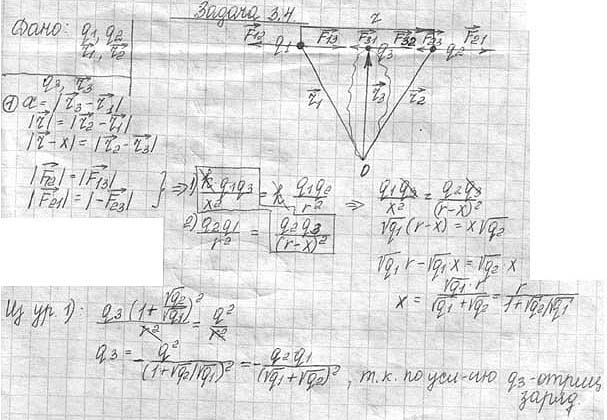 Задача 3.4
Дано: q₁, q₂
r⃗₁, r⃗₂
q₃, r⃗₃
r
F⃗₁₂ F⃗₁₃ F⃗₃₁ F⃗₃₂ F⃗₂₃ F⃗₂₁
q₁ q₃ q₂
r⃗₁ r⃗₃ r⃗₂
0
① x = |r⃗₃ - r⃗₁|
|r⃗| = |r⃗₂ - r⃗₁|
|r⃗ - x| = |r⃗₂ - r⃗₃|
|F⃗₁₂| = |F⃗₁₃|
|F⃗₂₁| = |-F⃗₂₃|
} ⇒ 1) k q₁q₃/x² = k q₁q₂/r² ⇒ q₁q₃/x² = q₂q₃/(r-x)²
2) q₂q₁/r² = q₂q₃/(r-x)²
√q₁(r-x) = x√q₂
√q₁ r - √q₁·x = √q₂·x
x = √q₁·r/(√q₁+√q₂) = r/(1+√q₂/√q₁)
Из ур 1): q₃(1+√q₂/√q₁)²/r² = q²/r²
q₃ = -q²/(1+√q₂/√q₁)² = -q₂q₁/(√q₁+√q₂)², т.к. по усл-ию q₃-отриц
заряд.